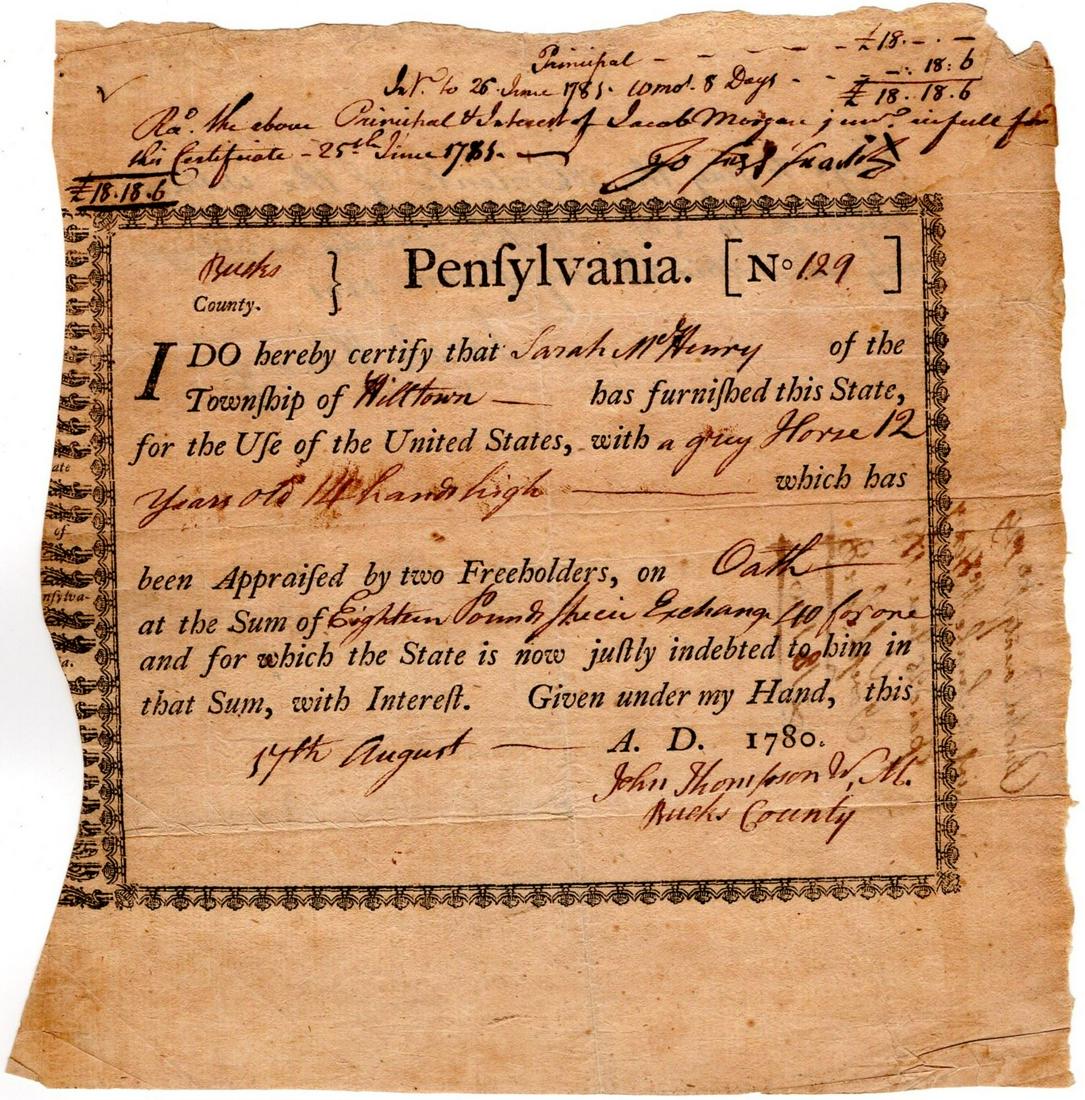 Principal - - - - £18. - . -
Int. to 26 June 1781. 10 mos. 8 Days - - - . 18: 6
£ 18. 18. 6
Recd. the above Principal & Interest of Jacob Morgan junr. in full for
this Certificate - 25th June 1781. —
£18.18.6
Bucks
County. } Penſylvania. [No 129 ]
I DO hereby certify that Sarah McHenry of the
Townſhip of Hilltown — has furniſhed this State,
for the Uſe of the United States, with a grey Horse 12
years old 14 hands high — which has
been Appraiſed by two Freeholders, on Oath —
at the Sum of Eighteen Pounds specie Exchange 40 for one
and for which the State is now juſtly indebted to him in
that Sum, with Intereſt. Given under my Hand, this
17th August — A. D. 1780.
John Thompson W, M.
Bucks County
ate
of
nſylva-
a.